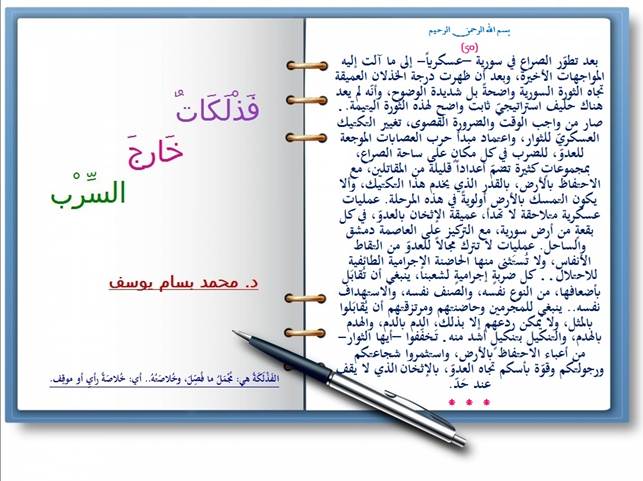 بسم الله الرحمن الرحيم
(50)
بعد تطوّر الصراع في سورية –عسكرياً– إلى ما آلت إليه
المواجهات الأخيرة، وبعد أن ظهرت درجة الخذلان العميقة
تجاه الثورة السورية واضحةً بل شديدة الوضوح، وأنّه لم يعد
هناك حليف استراتيجيّ ثابت واضح لهذه الثورة اليتيمة..
صار من واجب الوقت والضرورة القصوى، تغيير التكتيك
العسكريّ للثوار، واعتماد مبدأ حرب العصابات الموجعة
للعدوّ، للضرب في كل مكان على ساحة الصراع،
بمجموعاتٍ كثيرة تضمّ أعداداً قليلة من المقاتلين، مع
الاحتفاظ بالأرض، بالقدر الذي يخدم هذا التكتيك، وألا
يكون التمسك بالأرض أولويةً في هذه المرحلة. عمليات
عسكرية متلاحقة لا تهدأ، عميقة الإثخان بالعدوّ، في كل
بقعةٍ من أرض سورية، مع التركيز على العاصمة دمشق
والساحل. عمليات لا تترك مجالاً للعدو من التقاط
الأنفاس، ولا تُستَثنى منها الحاضنة الإجرامية الطائفية
للاحتلال.. كل ضربةٍ إجراميةٍ لشعبنا، ينبغي أن تُقابَل
بأضعافها، من النوع نفسه، والصنف نفسه، والاستهداف
نفسه.. ينبغي للمجرمين وحاضنتهم ومرتزقتهم أن يُقابَلوا
بالمثل، ولا يمكن ردعهم إلا بذلك، الدم بالدم، والهدم
بالهدم، والتنكيل بتنكيلٍ أشد منه. تَخفّفوا –أيها الثوار–
من أعباء الاحتفاظ بالأرض، واستثمروا شجاعتكم
ورجولتكم وقوّة بأسكم تجاه العدوّ، بالإثخان الذي لا يقف
عند حَدّ.
* * *
فَذْلَكَاتٌ
خَارِجَ
السِّرْب
د. محمد بسام يوسف
الفَذْلَكَةُ هي: مُجْمَلُ ما فُصِّلَ، وخُلاصَتُهُ.. أي: خُلاصَةُ رأيٍ أو موقِف.